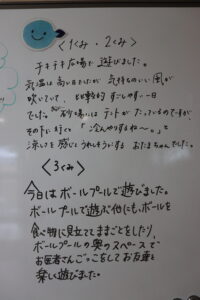 <1くみ・2くみ>
テキテキ広場で 遊びました。
気温は高い日でしたが 気持ちのいい風が
吹いていて、比較的 すごしやすい一日
でした。砂場には テントが たっているのですが
その下に行くと 「冷んやりするね〜。」と
涼しさを感じて うれしそうにする おたまちゃんでした。
<3くみ>
今日はボールプールで遊びました。
ボールプールで遊ぶ他にも、ボールを
食べ物に見立ててままごとをしたり、
ボールプールの奥のスペースで
お医者さんごっこをしてお友達と
楽しく遊びました。